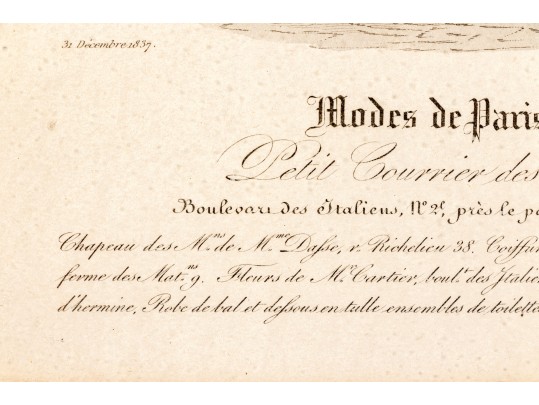 31 Décembre 1837.
Modes de Paris
Petit Courrier des
Boulevart des Italiens, N° 2, près le pa
Chapeau des M.ns de M.me Dasse, r. Richelieu 38. Coiffur
ferme des Mat.ns 9. Fleurs de M.r Cartier, boul.t des Italie
d'hermine, Robe de bal et dessous en tulle ensembles de toilette